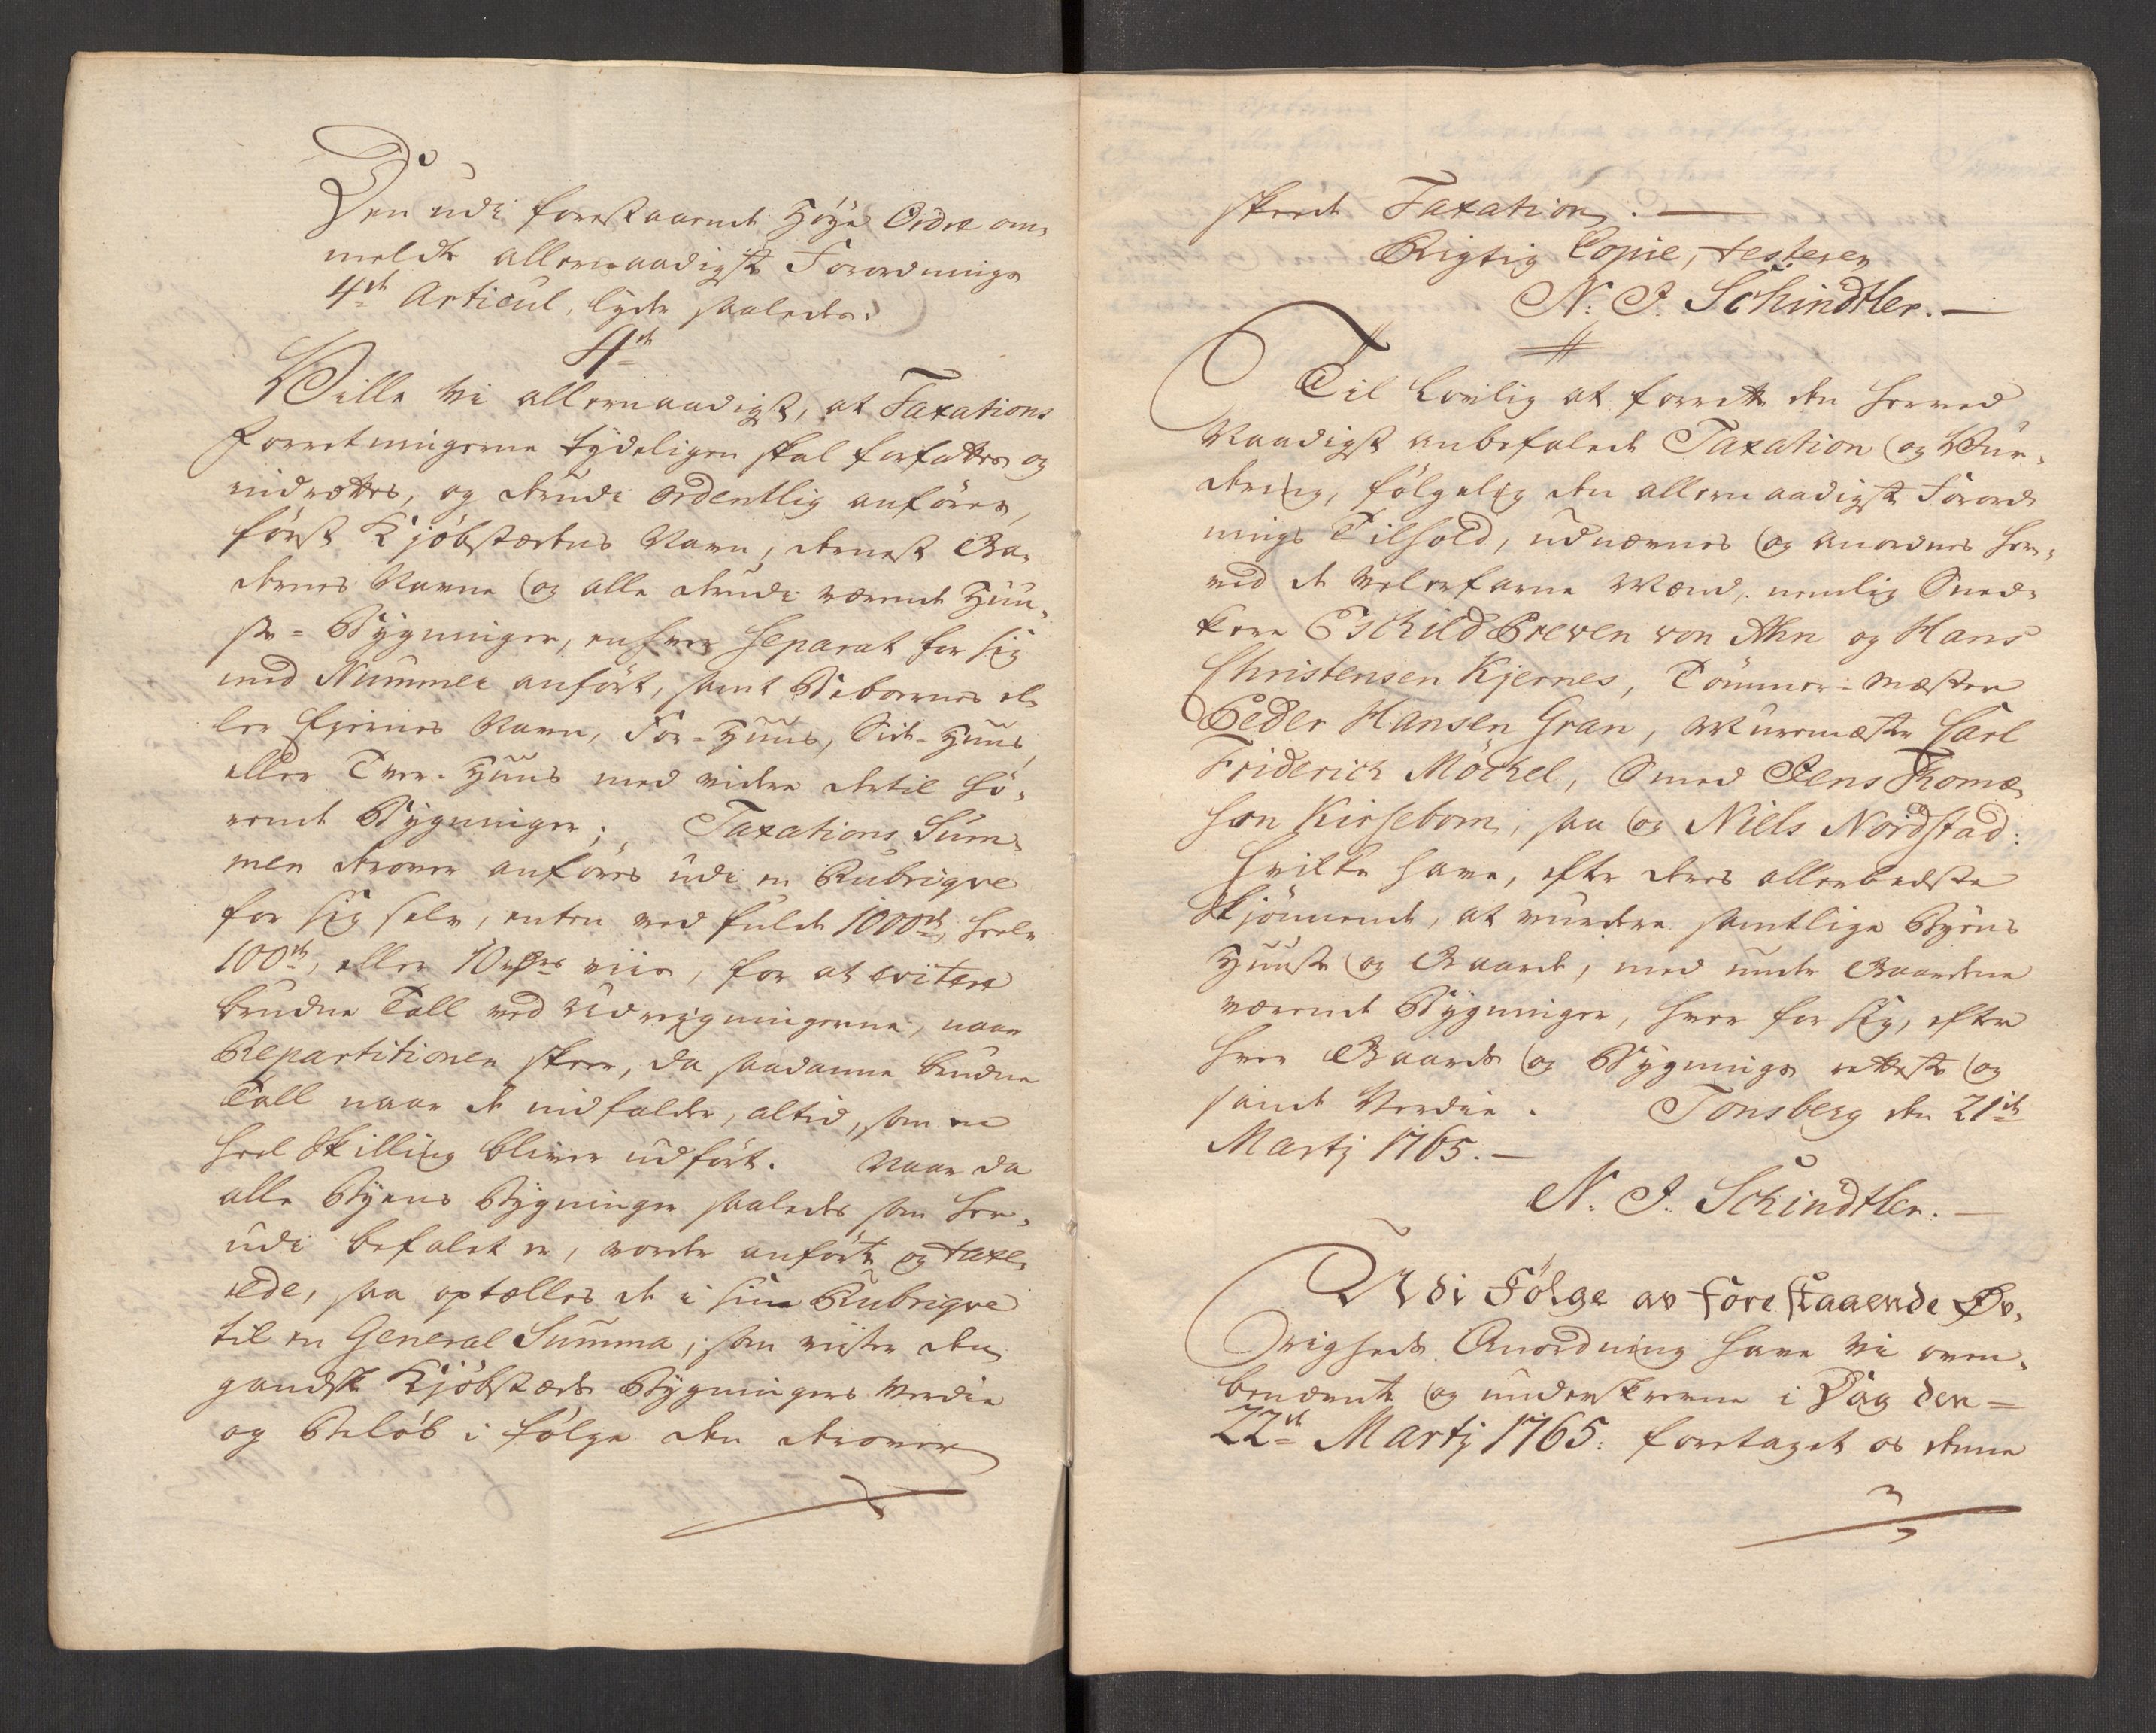 Den udi forestaaende Høye Ordre om-
meldte allernaadigste Forordnings
4de Articul, lyder saaledes:
4de
Ville Vi allernaadigst, at Taxations
Forretningerne tydeligen skal forfattes og
indrættes, og derudi ordentlig anføres,
først Kjøbstædens Navn, dernest Ga-
dernes Navne og alle derudi værende Huu-
se-Bygninger, enhver separat for sig
med Nummer anført, samt Beboernes el-
ler Eyernes Navn, For-Huus, Side-Huus,
eller Tver-Huus med videre dertil hø-
rende Bygninger; Taxations Sum-
men derover anføres udi en Rubriqve
for sig selv, enten ved fulde 1000de, heele
100de, eller 10 rdrs viis, for at evitere
brudne Tall ved Udregningerne, naar
Repartitionen skeer, da saadanne brudne
Tall naar de indfalder, altid, som en
heel Skilling bliver udført. Naar da
alle Byens Bygninger saaledes, som her-
udi befalet er, vorder anførte og taxe-
rede, saa optælles de i sin Rubriqve
til en General Summa, som viiser den
gandske Kjøbstæds Bygningers Verdie
og Beløb i følge den derover
skeede Taxation. —
Rigtig Copie, testerer
N: J: Schindtler. —
Til Lovlig at forrette den herved
Naadigst anbefalede Taxation og Vur-
dering, følgelig den allernaadigste Forord-
nings Tilhold, udnævnes og anordnes her-
ved de Velerfarne Mænd, nemlig Sned-
kere Eschild Preven von Ahn og Hans
Christensen Kjernes, Tømmer-Mæster
Peder Hansen Gran, Muurmæster Carl
Friderich Möckel, Smed Jens Thomæ-
søn Kirsebom, saa og Niels Nordstad:
hvilke have, efter deres allerbedste
Skjønnende, at vurdere samtlige Byens
Huuse og Gaarde, med under Gaardene
værende Bygninger, hver for sig, efter
hver Gaards og Bygnings retteste og
sande Verdie. Tonsberg den 21de
Martj 1765. —
N. J. Schindtler. —
Udi Følge av forestaaende Øv-
righeds Anordning have vi oven-
benævnte og underskrevne i Dag den =
22de Martj 1765: foretaget os denne